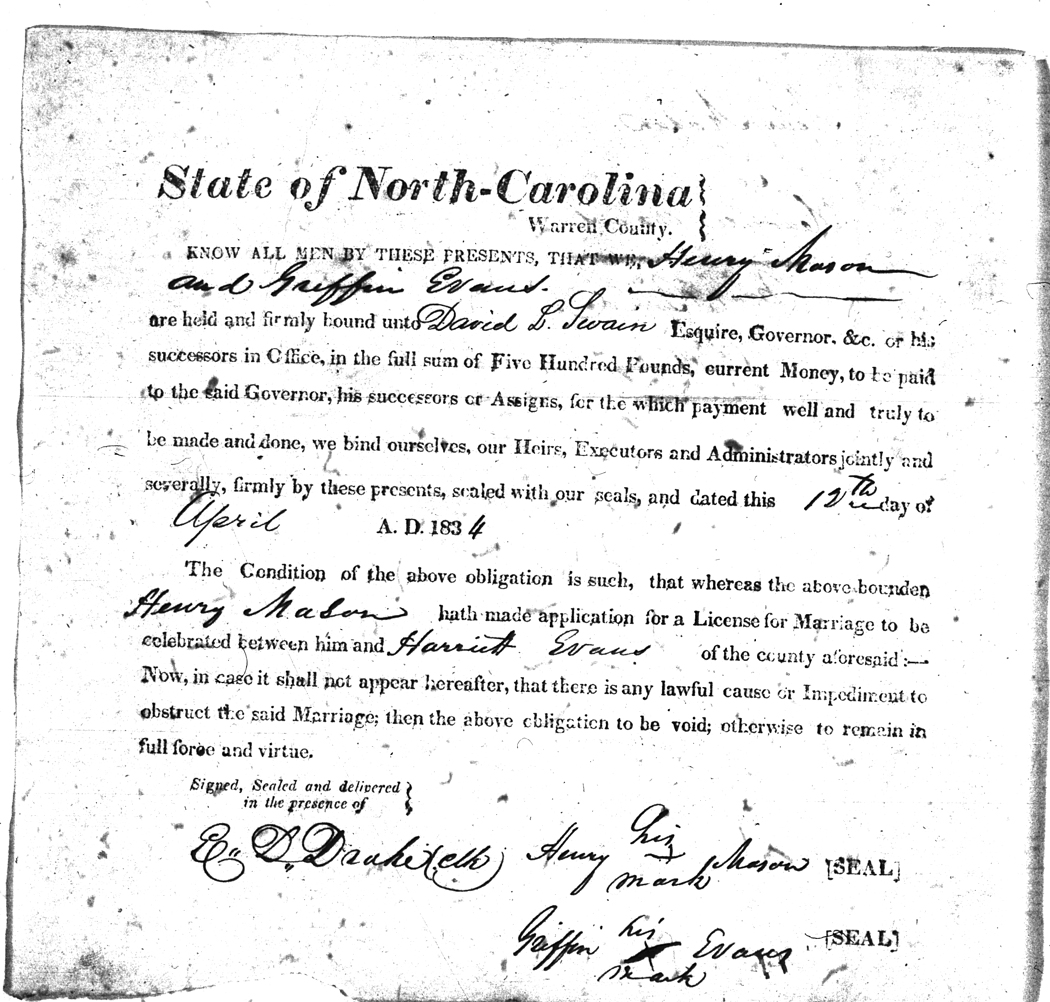 State of North-Carolina
Warren County.
KNOW ALL MEN BY THESE PRESENTS, THAT WE, Henry Mason
and Griffin Evans.
are held and firmly bound unto David L. Swain Esquire, Governor, &c. or his
successors in Office, in the full sum of Five Hundred Pounds, current Money, to be paid
to the said Governor, his successors or Assigns, for the which payment well and truly to
be made and done, we bind ourselves, our Heirs, Executors and Administrators jointly and
severally, firmly by these presents, sealed with our seals, and dated this 12th day of
April A. D. 1834
The Condition of the above obligation is such, that whereas the above bounden
Henry Mason hath made application for a License for Marriage to be
celebrated between him and Harriett Evans of the county aforesaid:—
Now, in case it shall not appear hereafter, that there is any lawful cause or Impediment to
obstruct the said Marriage; then the above obligation to be void; otherwise to remain in
full force and virtue.
Signed, Sealed and delivered
in the presence of
E. D. Drake clk
Henry his mark Mason [SEAL]
Griffin his mark Evans [SEAL]